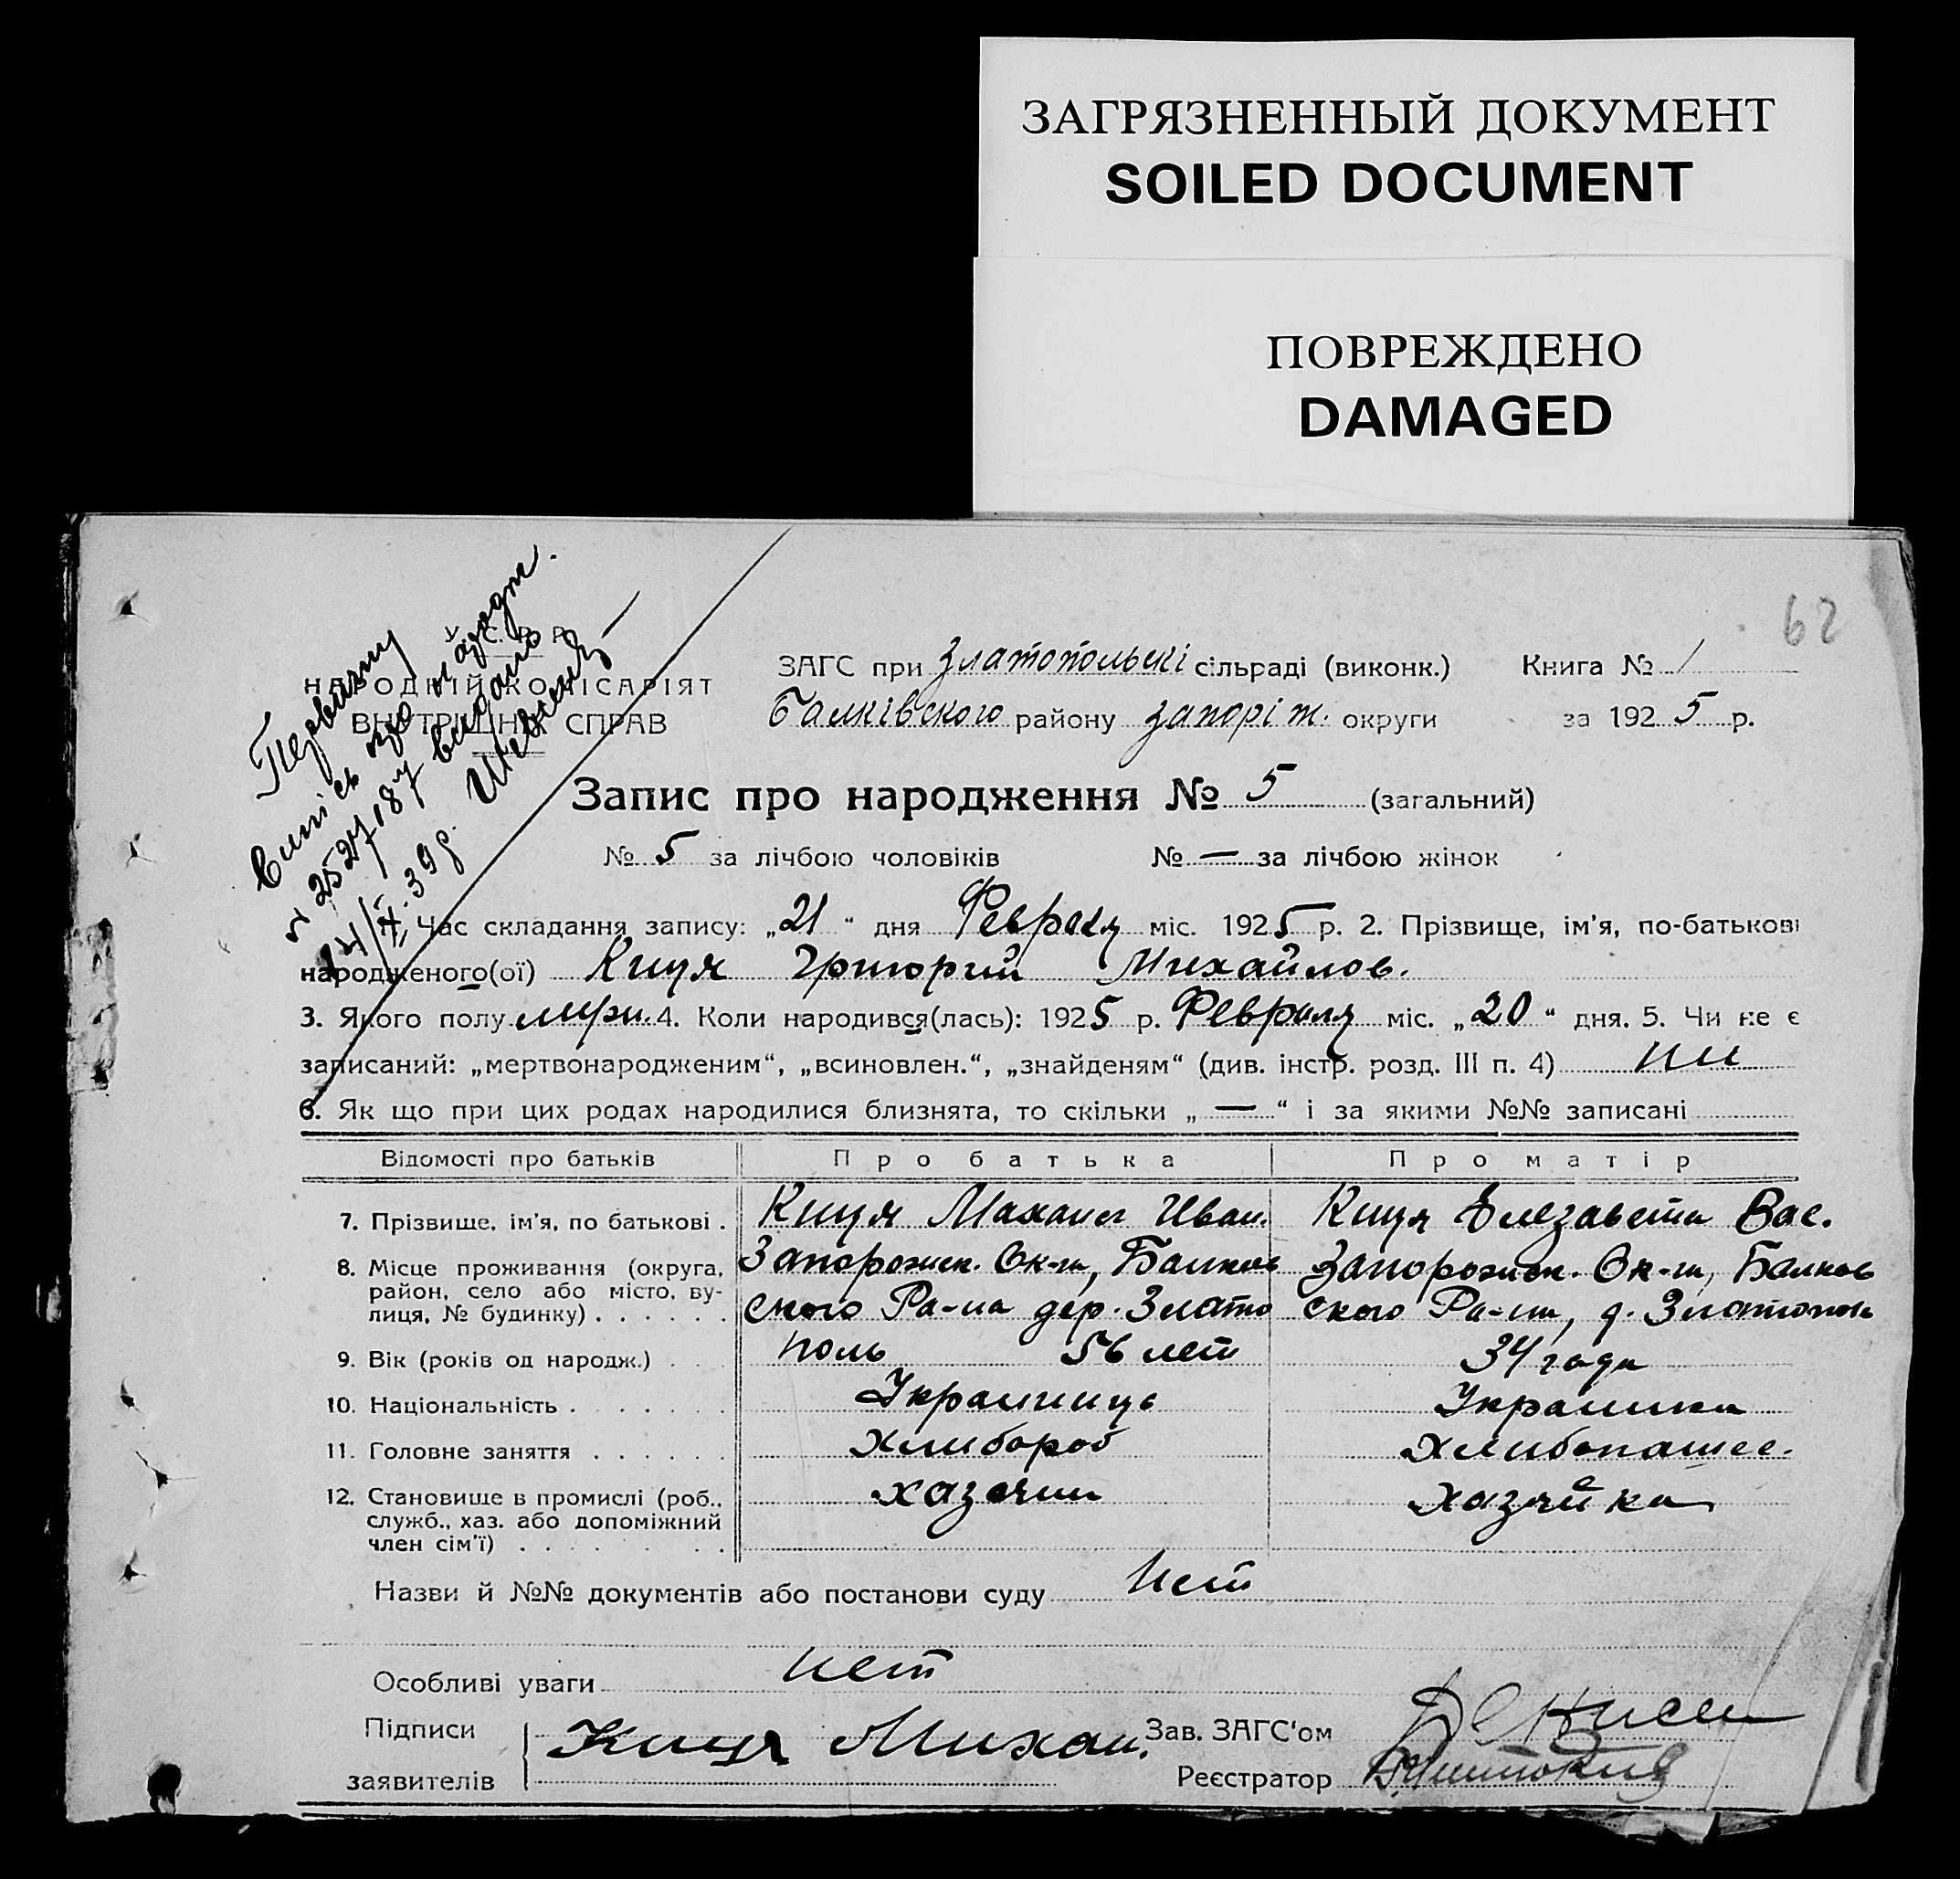 ЗАГРЯЗНЕННЫЙ ДОКУМЕНТ
SOILED DOCUMENT
ПОВРЕЖДЕНО
DAMAGED
62
Первичну
випісь про народж.
видано
Шевченко
У. С. Р. Р.
НАРОДНІЙ КОМІСАРІЯТ
ВНУТРІШНІХ СПРАВ
ЗАГС при Златопольскі сільраді (виконк.) Книга № 1
Балківского району запоріж. округи за 1925 р.
Запис про народження № 5 (загальний)
№ 5 за лічбою чоловіків № — за лічбою жінок
Час складання запису: „21“ дня Февраля міс. 1925 р. 2. Прізвище, ім'я, по-батькові
народженого(ої) Киця Григорий Михайлов.
3. Якого полу 4. Коли народився(лась): 1925 р. Февраля міс. „20“ дня. 5. Чи не є
записаний: „мертвонародженим“, „всиновлен.“, „знайденям“ (див. інстр. розд. III п. 4) ни
6. Як що при цих родах народилися близнята, то скільки „—“ і за якими №№ записані
Відомості про батьків Про батька Про матір
7. Прізвище, ім'я, по батькові . Киця Махаил Иван. Киця Елезавета Вас.
8. Місце проживання (округа, район, село або місто, вулиця, № будинку) . . . . . .
Запорожск. Ок-га, Балков
ского Ра-на дер. Злато
поль
Запорожск. Ок-га, Балков
ского Ра-на, д. Златополь
9. Вік (років од народж.) . . . 56 лет 34 года
10. Національність . . . . . . . Українць Українка
11. Головне заняття . . . . . . Хлибороб Хлибопашес.
12. Становище в промислі (роб., служб., хаз. або допоміжний член сім'ї) . . . . . . . хазяин хазяйка
Назви й №№ документів або постанови суду Нет
Особливі уваги нет
Підписи заявителів Киця Михаи.
Зав. ЗАГС'ом
Реєстратор